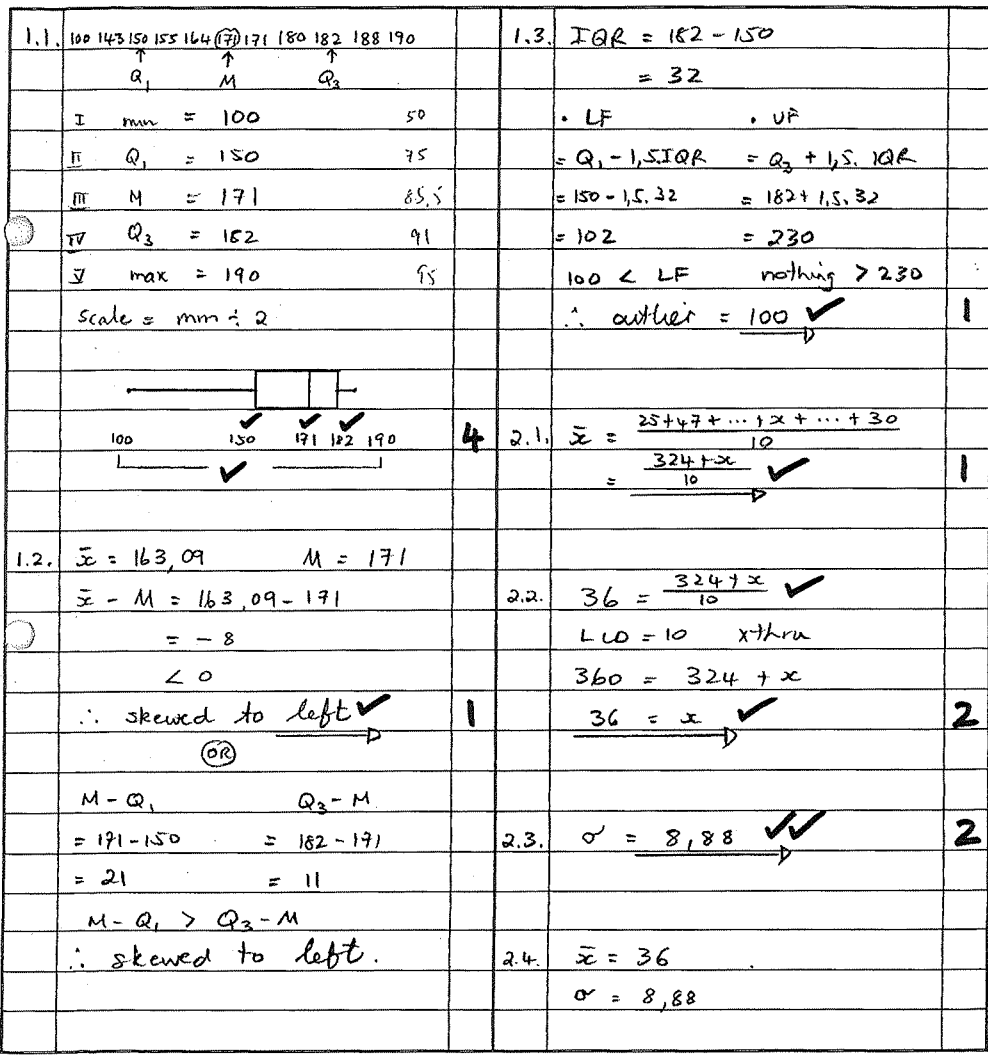 1.1. 100 143 150 155 164 171 171 180 182 188 190
↑ ↑ ↑
Q₁ M Q₃
I min = 100 50
II Q₁ = 150 75
III M = 171 85,5
IV Q₃ = 182 91
V max = 190 95
Scale = mm ÷ 2
✓ ✓ ✓
100 150 171 182 190 4
✓
1.2. x̄ = 163,09 M = 171
x̄ - M = 163,09 - 171
= - 8
< 0
∴ skewed to left ✓ 1
OR
M - Q₁ Q₃ - M
= 171 - 150 = 182 - 171
= 21 = 11
M - Q₁ > Q₃ - M
∴ skewed to left.
1.3. IQR = 182 - 150
= 32
• LF • UF
= Q₁ - 1,5IQR = Q₃ + 1,5. IQR
= 150 - 1,5. 32 = 182 + 1,5. 32
= 102 = 230
100 < LF nothing > 230
∴ outlier = 100 ✓ 1
2.1. x̄ = (25 + 47 + ... + x + ... + 30)/10
= (324 + x)/10 ✓ 1
2.2. 36 = (324 + x)/10 ✓
LCD = 10 x thru
360 = 324 + x
36 = x ✓ 2
2.3. σ = 8,88 ✓✓ 2
2.4. x̄ = 36
σ = 8,88